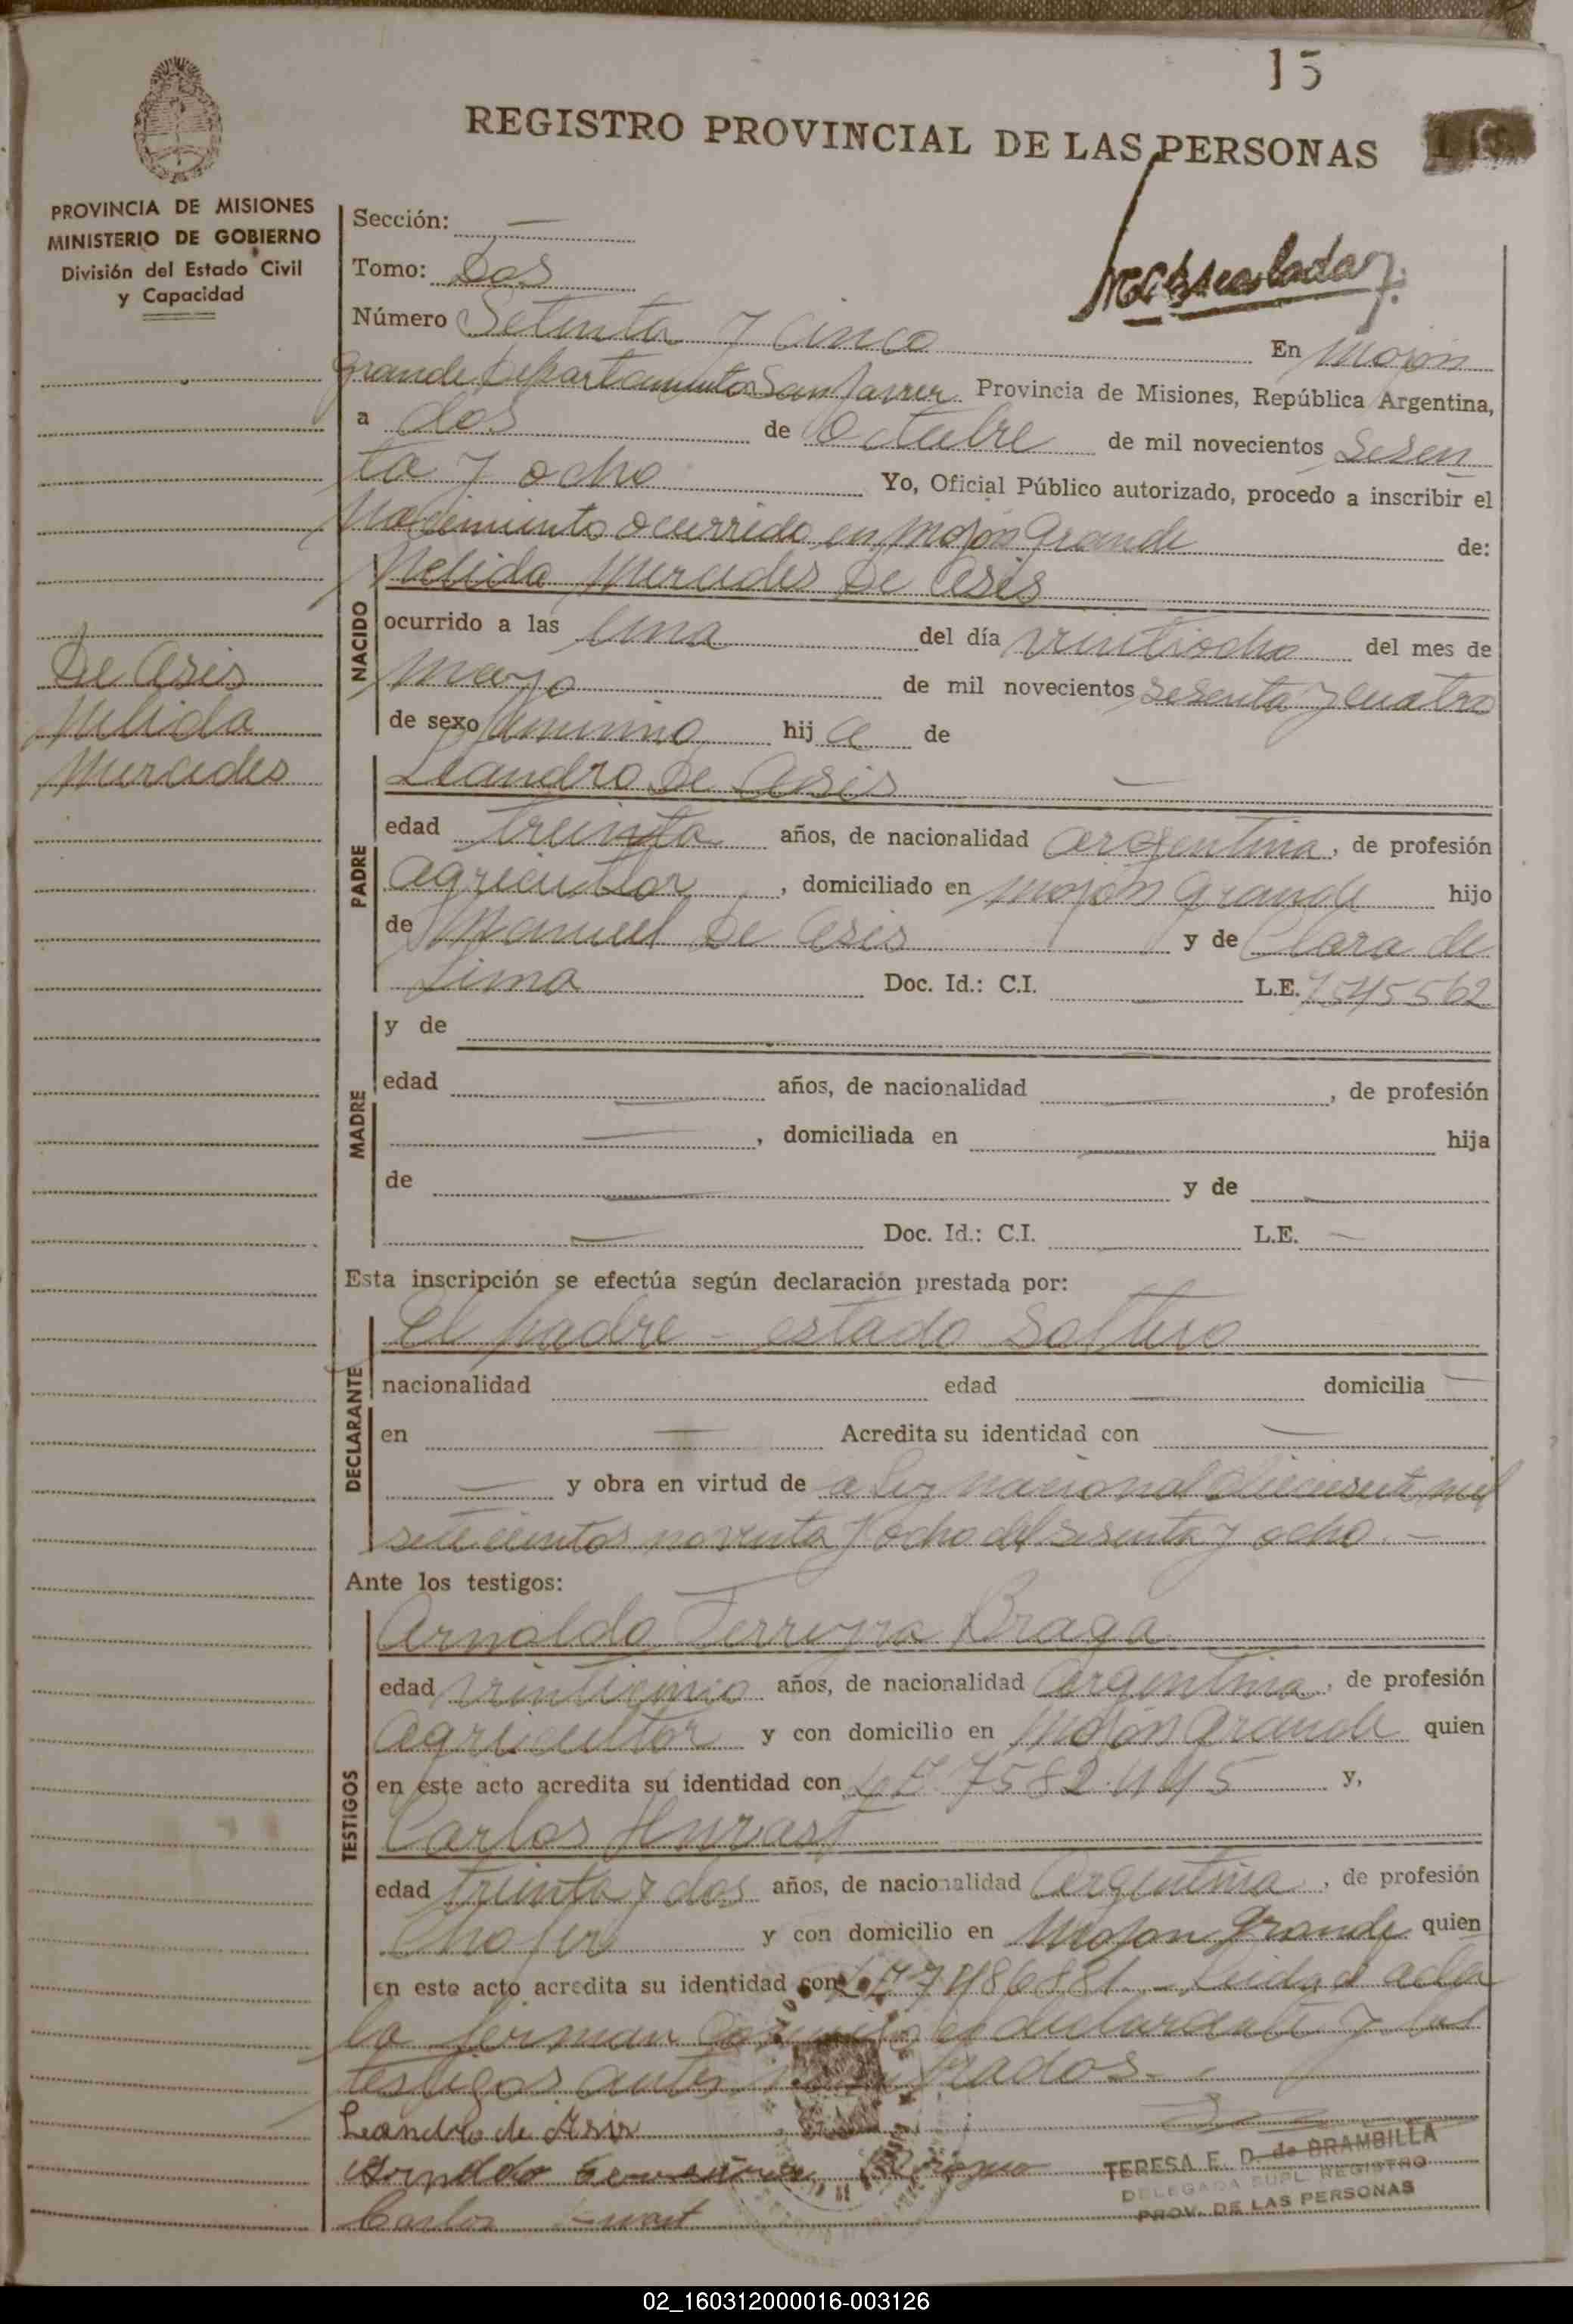 15
REGISTRO PROVINCIAL DE LAS PERSONAS
PROVINCIA DE MISIONES
MINISTERIO DE GOBIERNO
División del Estado Civil
y Capacidad
Sección: —
Tomo: Dos
Número Setenta y cinco En Mojón
Grande Departamento San Javier Provincia de Misiones, República Argentina,
a dos de Octubre de mil novecientos Sesen
ta y ocho Yo, Oficial Público autorizado, procedo a inscribir el
Nacimiento ocurrido en Mojón Grande de:
NACIDO
Nelida Mercedes De Asis
ocurrido a las una del día veintiocho del mes de
mayo de mil novecientos sesenta y cuatro
de sexo femenino hij a de
De Asis
Nelida
Mercedes
PADRE
Leandro De Asis —
edad treinta años, de nacionalidad argentina, de profesión
agricultor, domiciliado en Mojón Grande hijo
de Manuel De Asis y de Clara de
Lima Doc. Id.: C.I. — L.E. 7545562
MADRE
y de
edad — años, de nacionalidad —, de profesión
—, domiciliada en — hija
de — y de —
— Doc. Id.: C.I. — L.E. —
Esta inscripción se efectúa según declaración prestada por:
DECLARANTE
El padre - estado Soltero
nacionalidad edad — domicilia —
en — Acredita su identidad con —
— y obra en virtud de a Ley nacional diecisiete mil
setecientos noventa y ocho del sesenta y ocho. —
Ante los testigos:
TESTIGOS
Arnoldo Ferreyra Braga
edad veinticinco años, de nacionalidad argentina, de profesión
agricultor y con domicilio en Mojón Grande quien
en este acto acredita su identidad con L.E. 7582.445 y,
Carlos
edad treinta y dos años, de nacionalidad argentina, de profesión
Chofer y con domicilio en Mojon Grande quien
en este acto acredita su identidad con L.E. 7486881 - Leida el acta
la firman conmigo el declarante y los
testigos antes nombrados. -
Leandro de Asis
Arnoldo
Carlos
TERESA E. D. de BRAMBILLA
DELEGADA SUPL. REGISTRO
PROV. DE LAS PERSONAS
02_160312000016-003126